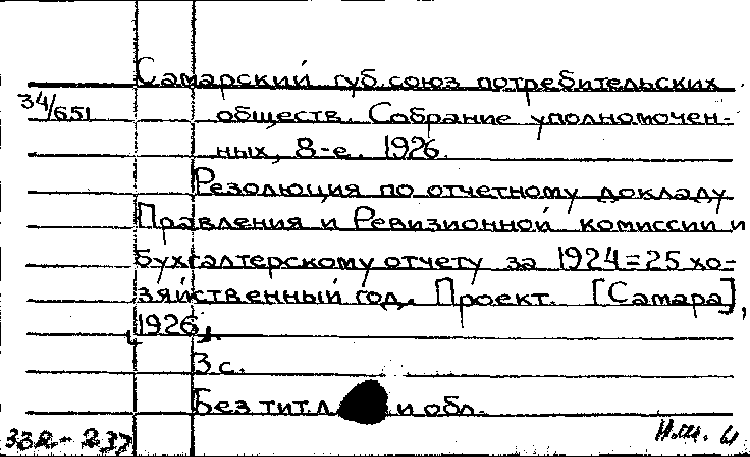 Самарский губ.союз потребительских
34/651 обществ. Собрание уполномочен-
ных, 8-е. 1926.
Резолюция по отчетному докладу
Правления и Ревизионной комиссии и
бухгалтерскому отчету за 1924=25 хо-
зяйственный год. Проект. [Самара],
1926.
3 с.
Без тит.л и обл.
332-237